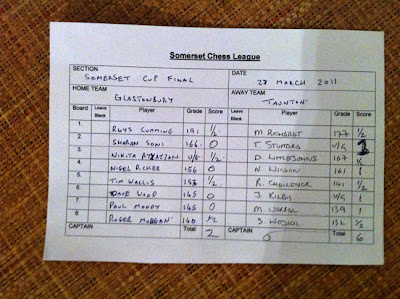 Somerset Chess League
SECTION DATE
SOMERSET CUP FINAL 27 MARCH 2011
HOME TEAM AWAY TEAM
GLASTONBURY TAUNTON
Board Leave Blank Player Grade Score Leave Blank Player Grade Score
1 RHYS CUMMING 191 1/2 M RICHARDT 177 1/2
2 SHARAN SONI 166 0 T V/G 1
3 NIKITA U/G 1/2 D LITTLEJOHNS 167 1/2
4 NIGEL 156 0 N WILSON 161 1
5 TIM WALLIS 1/2 R CHALLENOR 141 1/2
6 DAVE WOOD 145 0 J KILBY U/G 1
7 PAUL MOODY 145 0 M 139 1
8 ROGER MORGAN 140 1/2 S 1/2
CAPTAIN Total 2 CAPTAIN Total 6
0